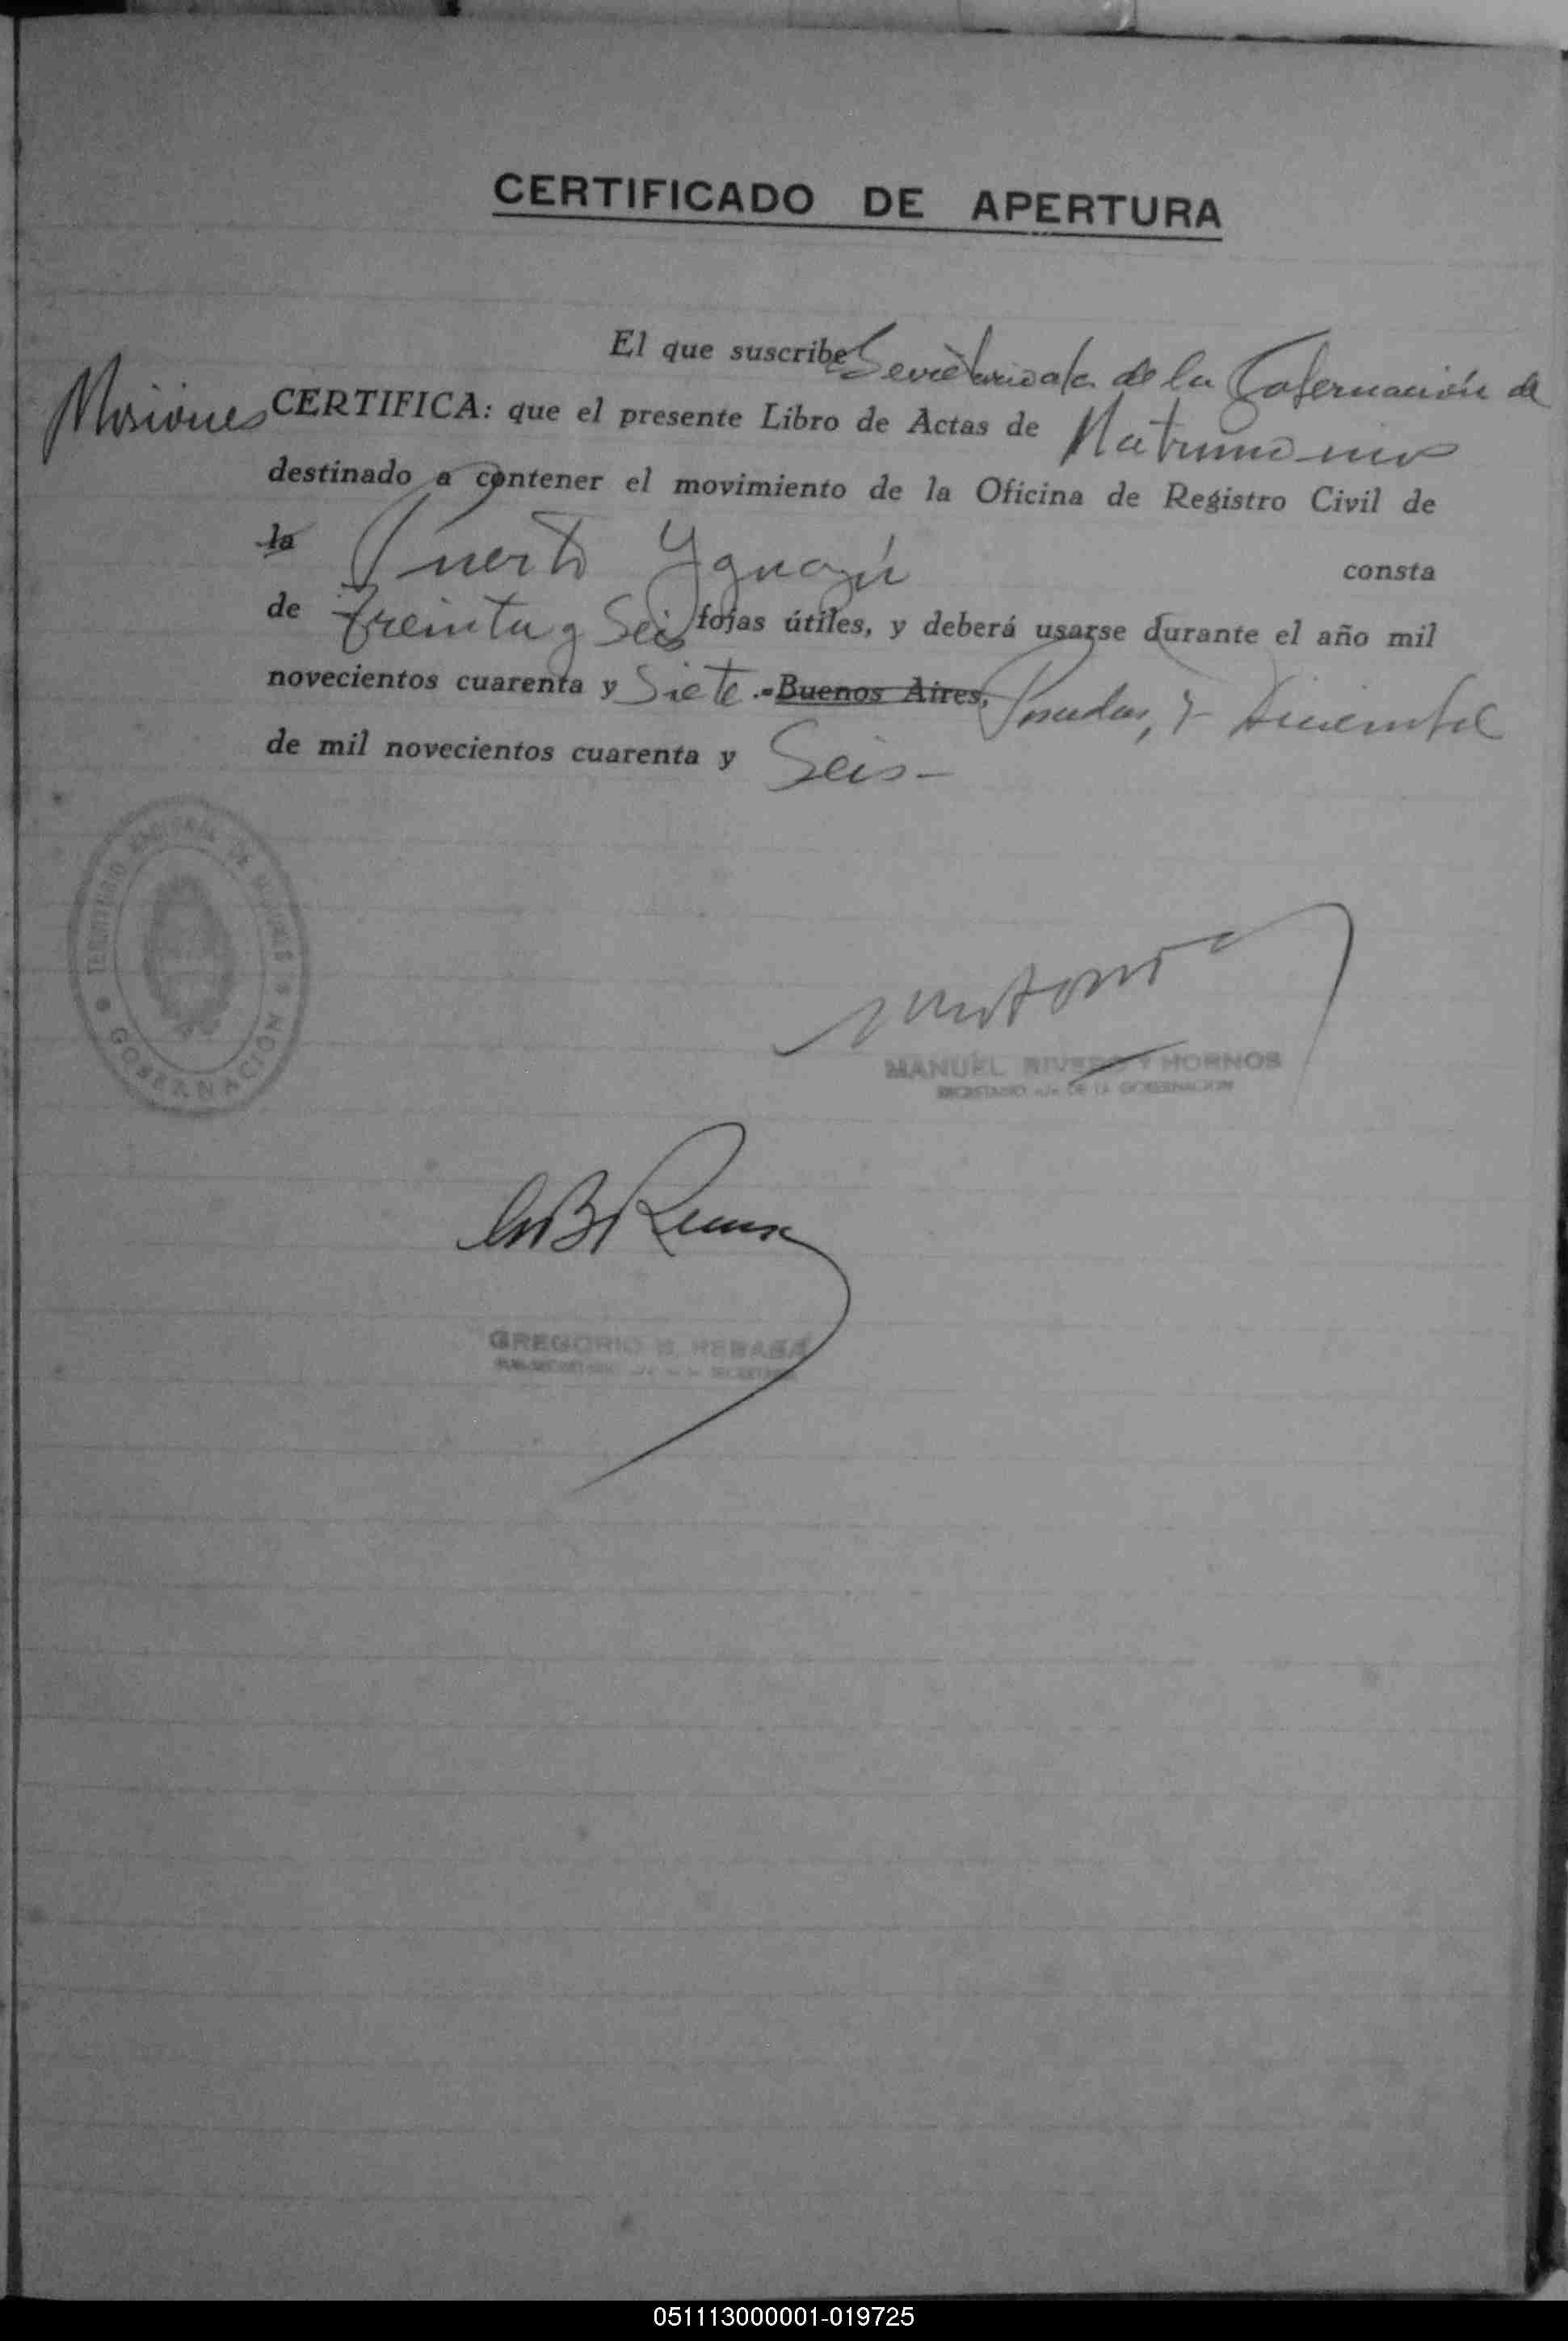 CERTIFICADO DE APERTURA
El que suscribe Secretario a/c de la Gobernación de
Misiones CERTIFICA: que el presente Libro de Actas de Matrimonios
destinado a contener el movimiento de la Oficina de Registro Civil de
la Puerto Yguazú consta
de treinta y Seis fojas útiles, y deberá usarse durante el año mil
novecientos cuarenta y Siete.-Buenos Aires, Posadas, Diciembre
de mil novecientos cuarenta y Seis-
TERRITORIO NACIONAL DE MISIONES
GOBERNACION
MANUEL RIVERO Y HORNOS
SECRETARIO a/c DE LA GOBERNACION
GREGORIO B. REBASA
051113000001-019725